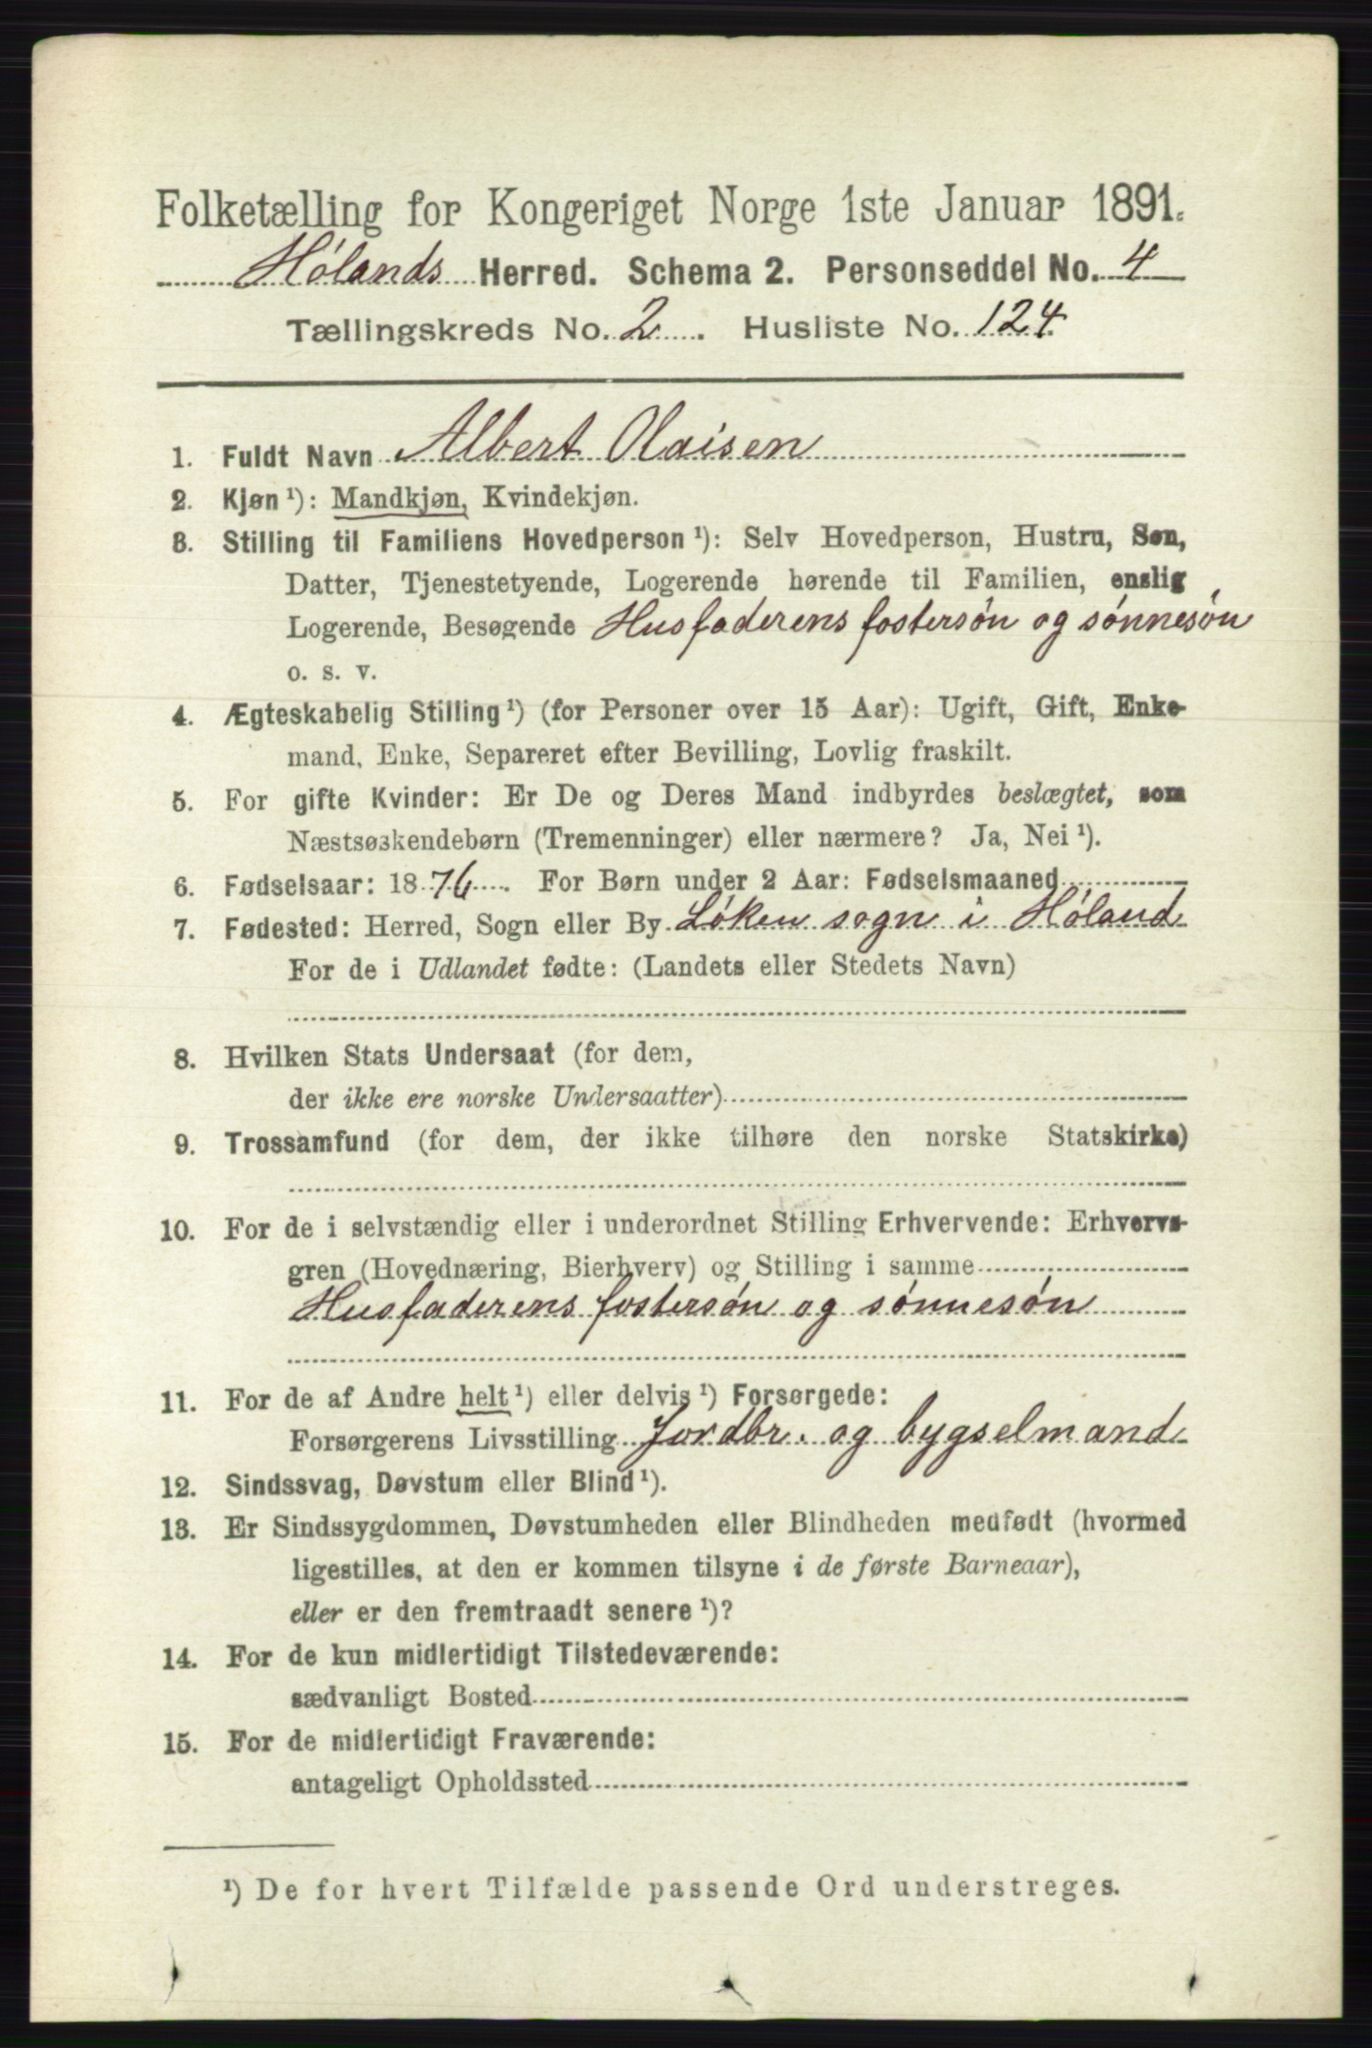 Folketælling for Kongeriget Norge 1ste Januar 1891.
Hølands Herred. Schema 2. Personseddel No. 4
Tællingskreds No. 2. Husliste No. 124
1. Fuldt Navn Albert Olaisen
2. Kjøn ¹): Mandkjøn, Kvindekjøn.
3. Stilling til Familiens Hovedperson ¹): Selv Hovedperson, Hustru, Søn,
Datter, Tjenestetyende, Logerende hørende til Familien, enslig
Logerende, Besøgende Husfaderens fostersøn og sønnesøn
o. s. v.
4. Ægteskabelig Stilling ¹) (for Personer over 15 Aar): Ugift, Gift, Enke-
mand, Enke, Separeret efter Bevilling, Lovlig fraskilt.
5. For gifte Kvinder: Er De og Deres Mand indbyrdes beslægtet, som
Næstsøskendebørn (Tremenninger) eller nærmere? Ja, Nei ¹).
6. Fødselsaar: 1876. For Børn under 2 Aar: Fødselsmaaned
7. Fødested: Herred, Sogn eller By Løken sogn i Høland
For de i Udlandet fødte: (Landets eller Stedets Navn)
8. Hvilken Stats Undersaat (for dem,
der ikke ere norske Undersaatter)
9. Trossamfund (for dem, der ikke tilhøre den norske Statskirke)
10. For de i selvstændig eller i underordnet Stilling Erhvervende: Erhvervs-
gren (Hovednæring, Bierhverv) og Stilling i samme
Husfaderens fostersøn og sønnesøn
11. For de af Andre helt ¹) eller delvis ¹) Forsørgede:
Forsørgerens Livsstilling Jordbr. og bygselmand
12. Sindssvag, Døvstum eller Blind ¹).
13. Er Sindssygdommen, Døvstumheden eller Blindheden medfødt (hvormed
ligestilles, at den er kommen tilsyne i de første Barneaar),
eller er den fremtraadt senere ¹)?
14. For de kun midlertidigt Tilstedeværende:
sædvanligt Bosted
15. For de midlertidigt Fraværende:
antageligt Opholdssted
¹) De for hvert Tilfælde passende Ord understreges.